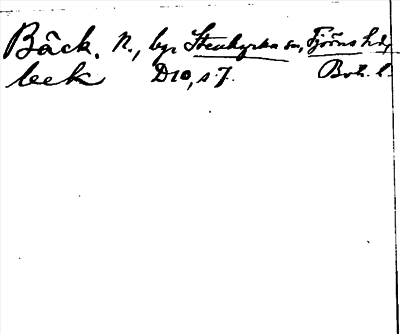 Bäck. N., by, Stenkyrka sn, Tjörns hd,
beck D10, s. 7. Boh. l.